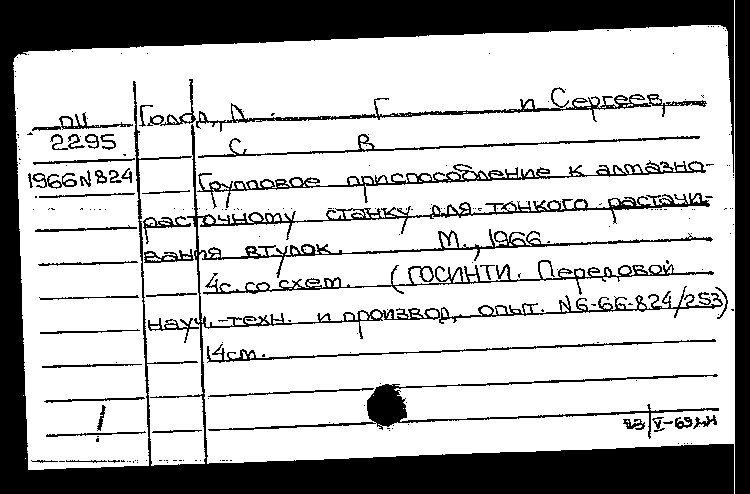 ПИ Голод, Д. Г и Сергеев,
2295 С. В
1966 N 824 Групповое приспособление к алмазно-
расточному станку для тонкого растачи-
вания втулок. М., 1966.
4с. со схем. (ГОСИНТИ. Передовой
науч.-техн. и производ. опыт. N 6-66-824/253).
14см.